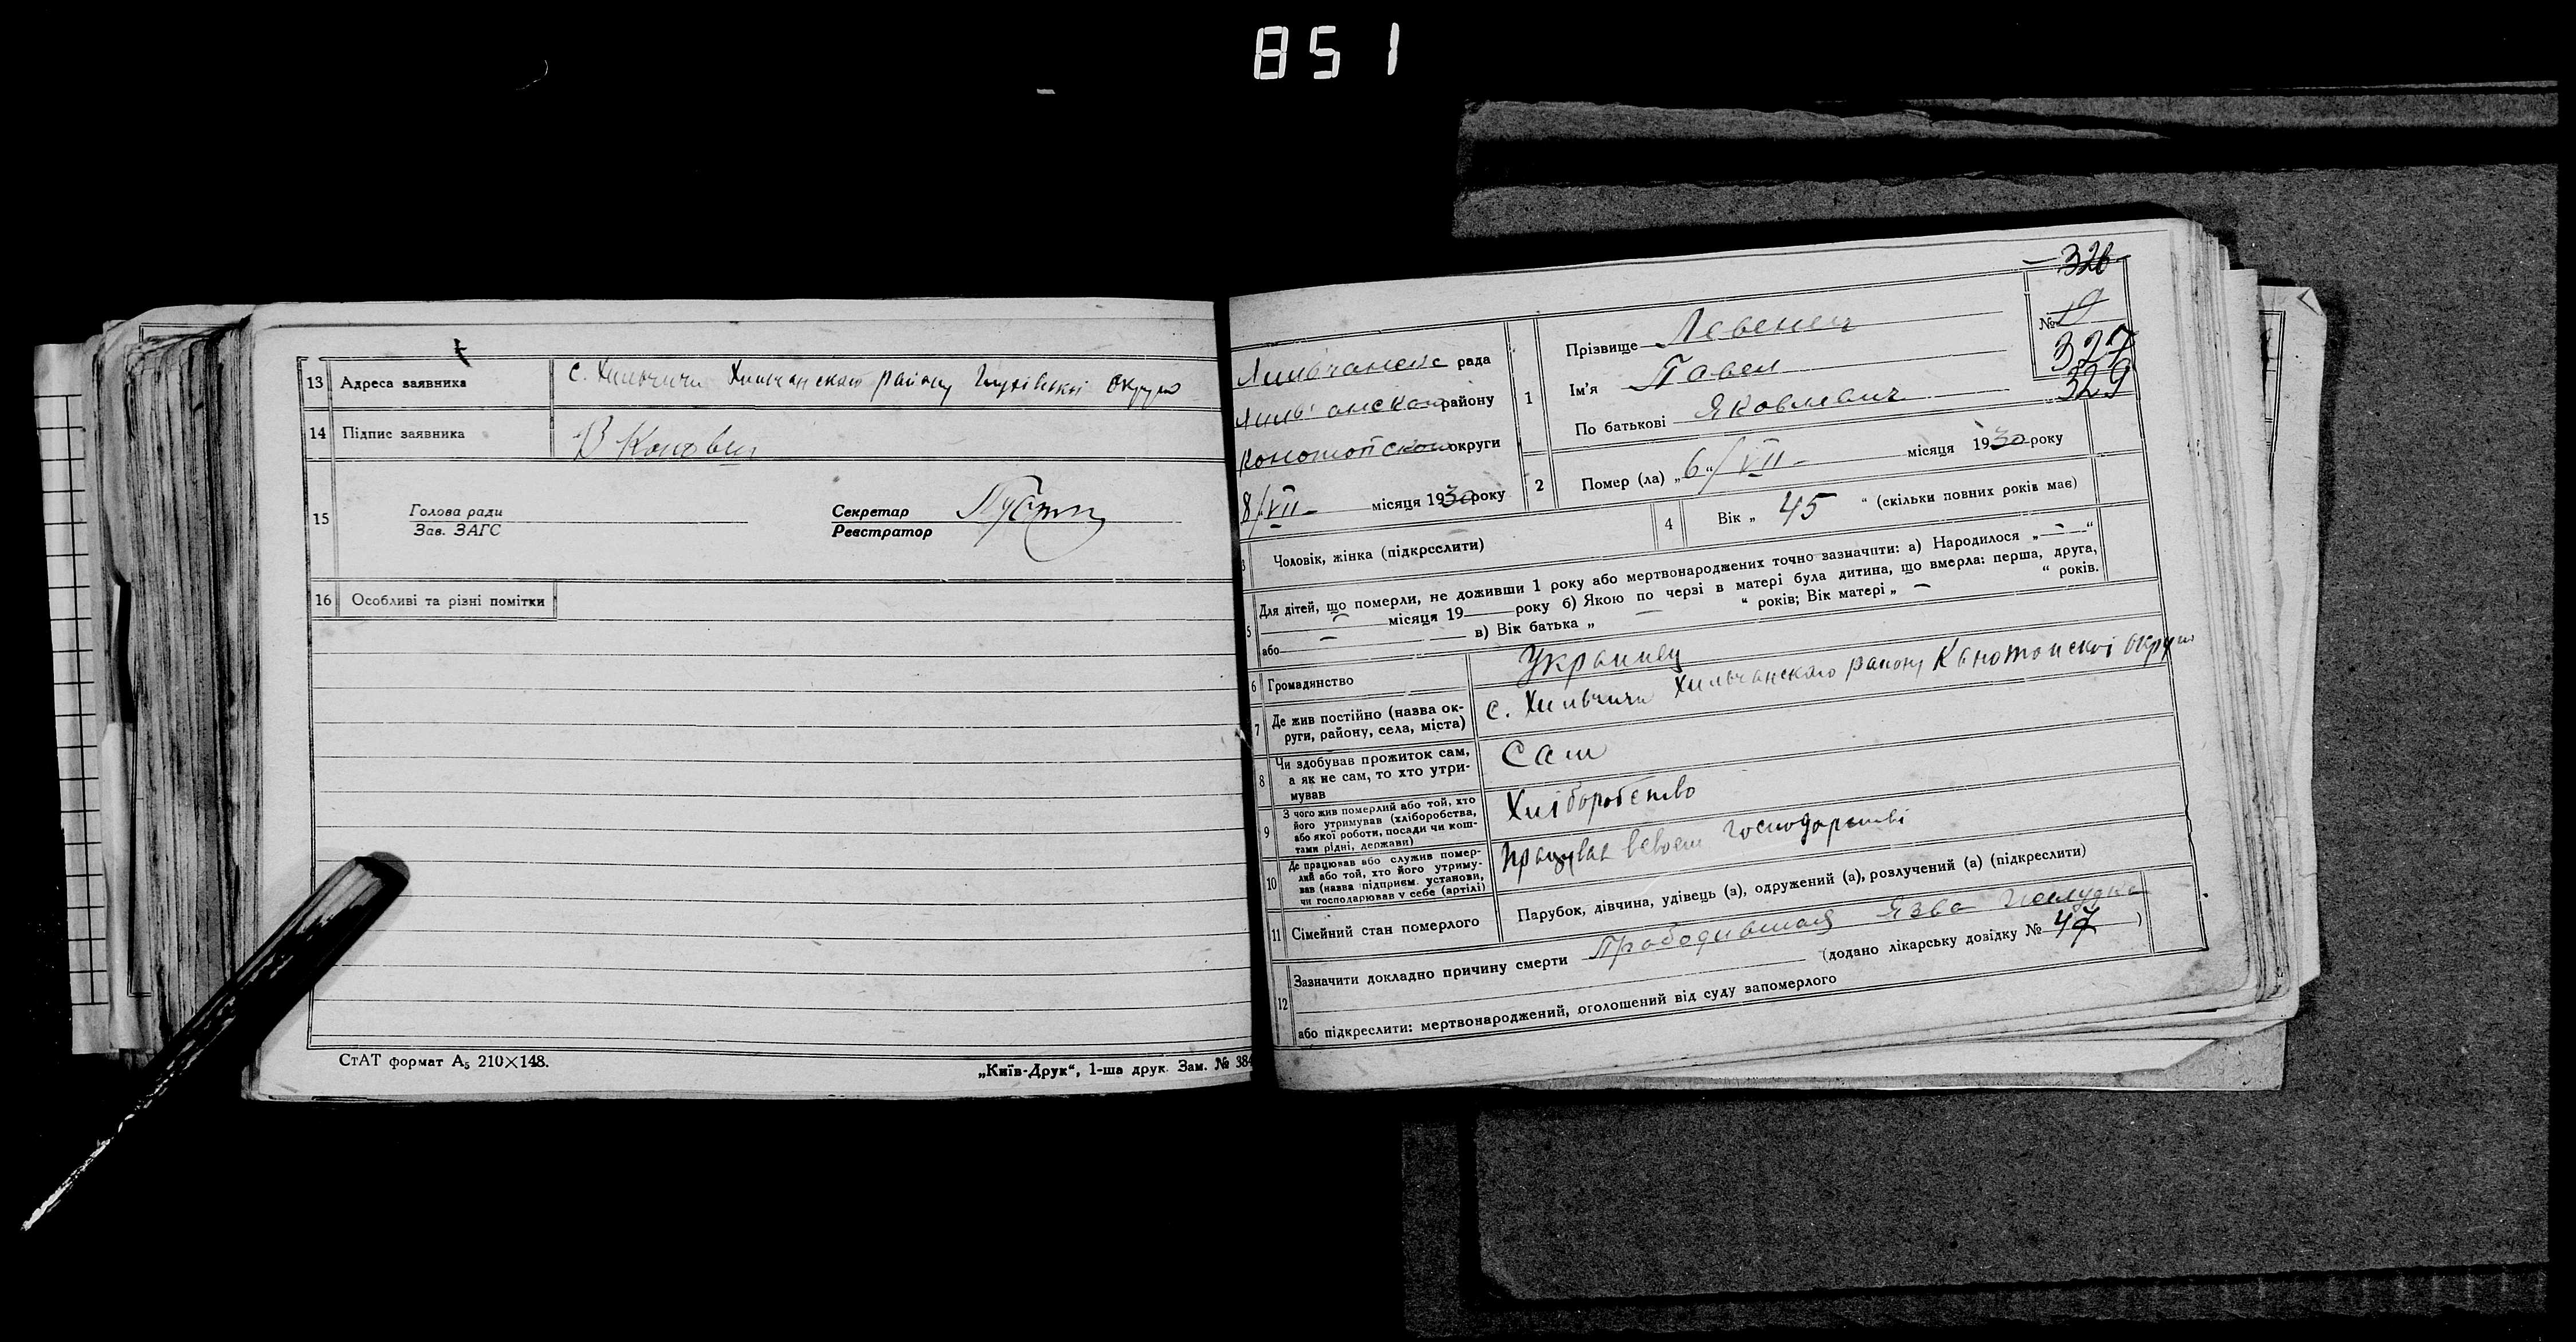 851
13 Адреса заявника с. Хильчичи Хильчанского району Глухівської округи
14 Підпис заявника
15 Голова ради
Зав. ЗАГС
Секретар
Реєстратор
16 Особливі та різні помітки
СтАТ формат А₅ 210×148.
„Київ-Друк“, 1-ша друк. Зам. № 384
326
№ 19
327
329
Хильчанська рада
району
Конотопской округи
8/VII- місяця 1930 року
1 Прізвище Левенец
Ім'я Павел
По батькові Яковлевич
2 Помер (ла) „6“/VII- місяця 1930 року
3 Чоловік, жінка (підкреслити)
4 Вік „ 45 “ (скільки повних років має)
5 Для дітей, що померли, не доживши 1 року або мертвонароджених точно зазначити: а) Народилося „ — “
— місяця 19 року б) Якою по черзі в матері була дитина, що вмерла: перша, друга,
або — в) Вік батька „ — “ років; Вік матері „ — “ років.
6 Громадянство Украинец
7 Де жив постійно (назва ок-
руги, району, села, міста) с. Хильчичи Хильчанского району Канотопскої округи
8 Чи здобував прожиток сам,
а як не сам, то хто утри-
мував Сам
9 З чого жив померлий або той, хто
його утримував (хліборобства,
або якої роботи, посади чи кош-
тами рідні, держави) Хліборобство
10 Де працював або служив помер-
лий або той, хто його утриму-
вав (назва підприєм. установи,
чи господарював у себе (артілі) працував всвоем господарстві
11 Сімейний стан померлого Парубок, дівчина, удівець (а), одружений (а), розлучений (а) (підкреслити)
12 Зазначити докладно причину смерти Прободившая Язва Желудка
(додано лікарську довідку № 47 )
або підкреслити: мертвонароджений, оголошений від суду запомерлого